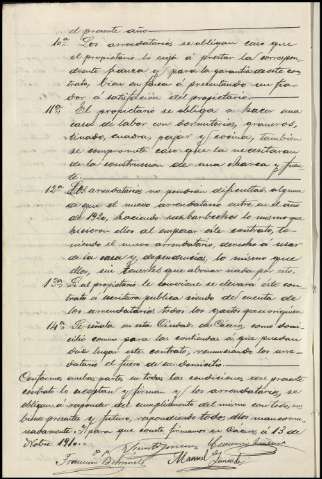 el presente año
10ª Los arrendatarios se obligan caso que
el propietario lo exija á prestar la correspon
diente fianza y para la garantia de este con
trato, bien en finca ó presentando un fia
dor á satisfacción del propietario.
11ª El propietario se obliga á hacer una
casa de labor con dormitorios, graneros,
cuadras, pajar y cocina, tambien
se compromete caso que la necesitaran
de la construccion de una charca y
12ª Los arrendatarios no pondran dificultad alguna
á que el nuevo arrendatario entre en el año
de 1920, haciendo sus barbechos lo mismo que
hicieron ellos al empezar este contrato, te
niendo el nuevo arrendatario, derecho á usar
de la casa y dependencias, lo mismo que
ellos, sin tenerles que abonar nada por esto.
13ª Si al propietario le conviniese se elevará este con
trato á escritura publica siendo de cuenta de
los arrendatarios todos los gastos que origine
14ª Se señala en esta Ciudad de Cáceres como domi
cilio comun para las contiendas á que pueda
dar lugar este contrato, renunciando los arren
datarios el fuero de su domicilio.
Conforme ambas partes en todas las condiciones del presente
contrato lo aceptan y firman y los arrendatarios, se
obligan á responder del cumplimiento del mismo con todos sus
bienes presentes y futuros, respondiendo todos ellos mancomu
nadamente. Y para que conste firmamos en Cáceres á 13 de
1910.
Francisco
Manuel